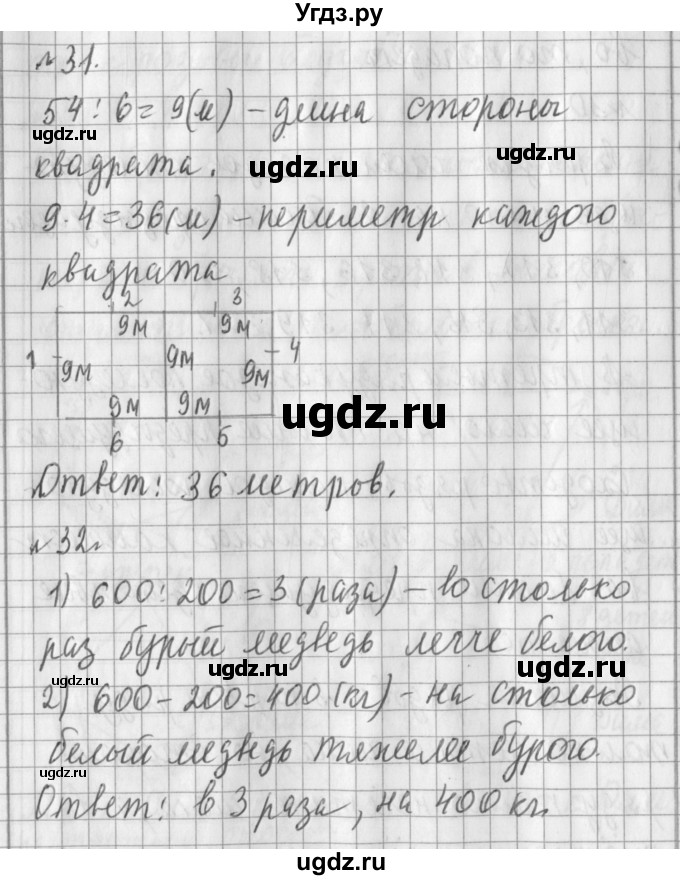 Угдз.ру
№31.
54:6=9(м) – длина стороны
квадрата.
ugdz.ru
ugdz.ru
9·4=36(м) – периметр каждого
квадрата
2 3
9м 9м
1 9м 9м 9м 4
9м 9м
ugdz.ru
6 5
Ответ: 36 метров.
№32.
1) 600:200=3(раза) – во столько
раз бурый медведь легче белого.
ugdz.ru
ugdz.ru
ugdz.ru
2) 600–200=400(кг) – на столько
белый медведь тяжелее бурого.
ugdz.ru
ugdz.ru
Ответ: в 3 раза, на 400 кг.
ugdz.ru
ugdz.ru